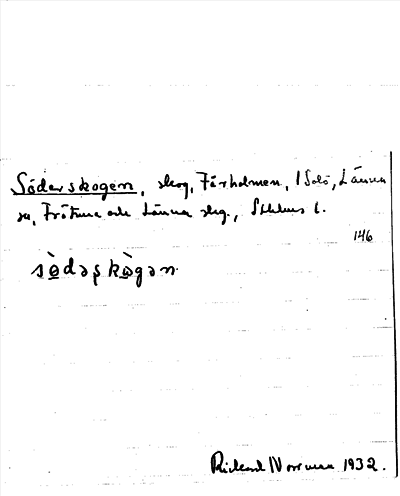 Söderskogen, skog, Fårholmen, I Solö, Länna
sn, Frötuna och Länna skg., Sthlms l.
146
sö̀dəʂkò̀gən
Rickard Norrman 1932.